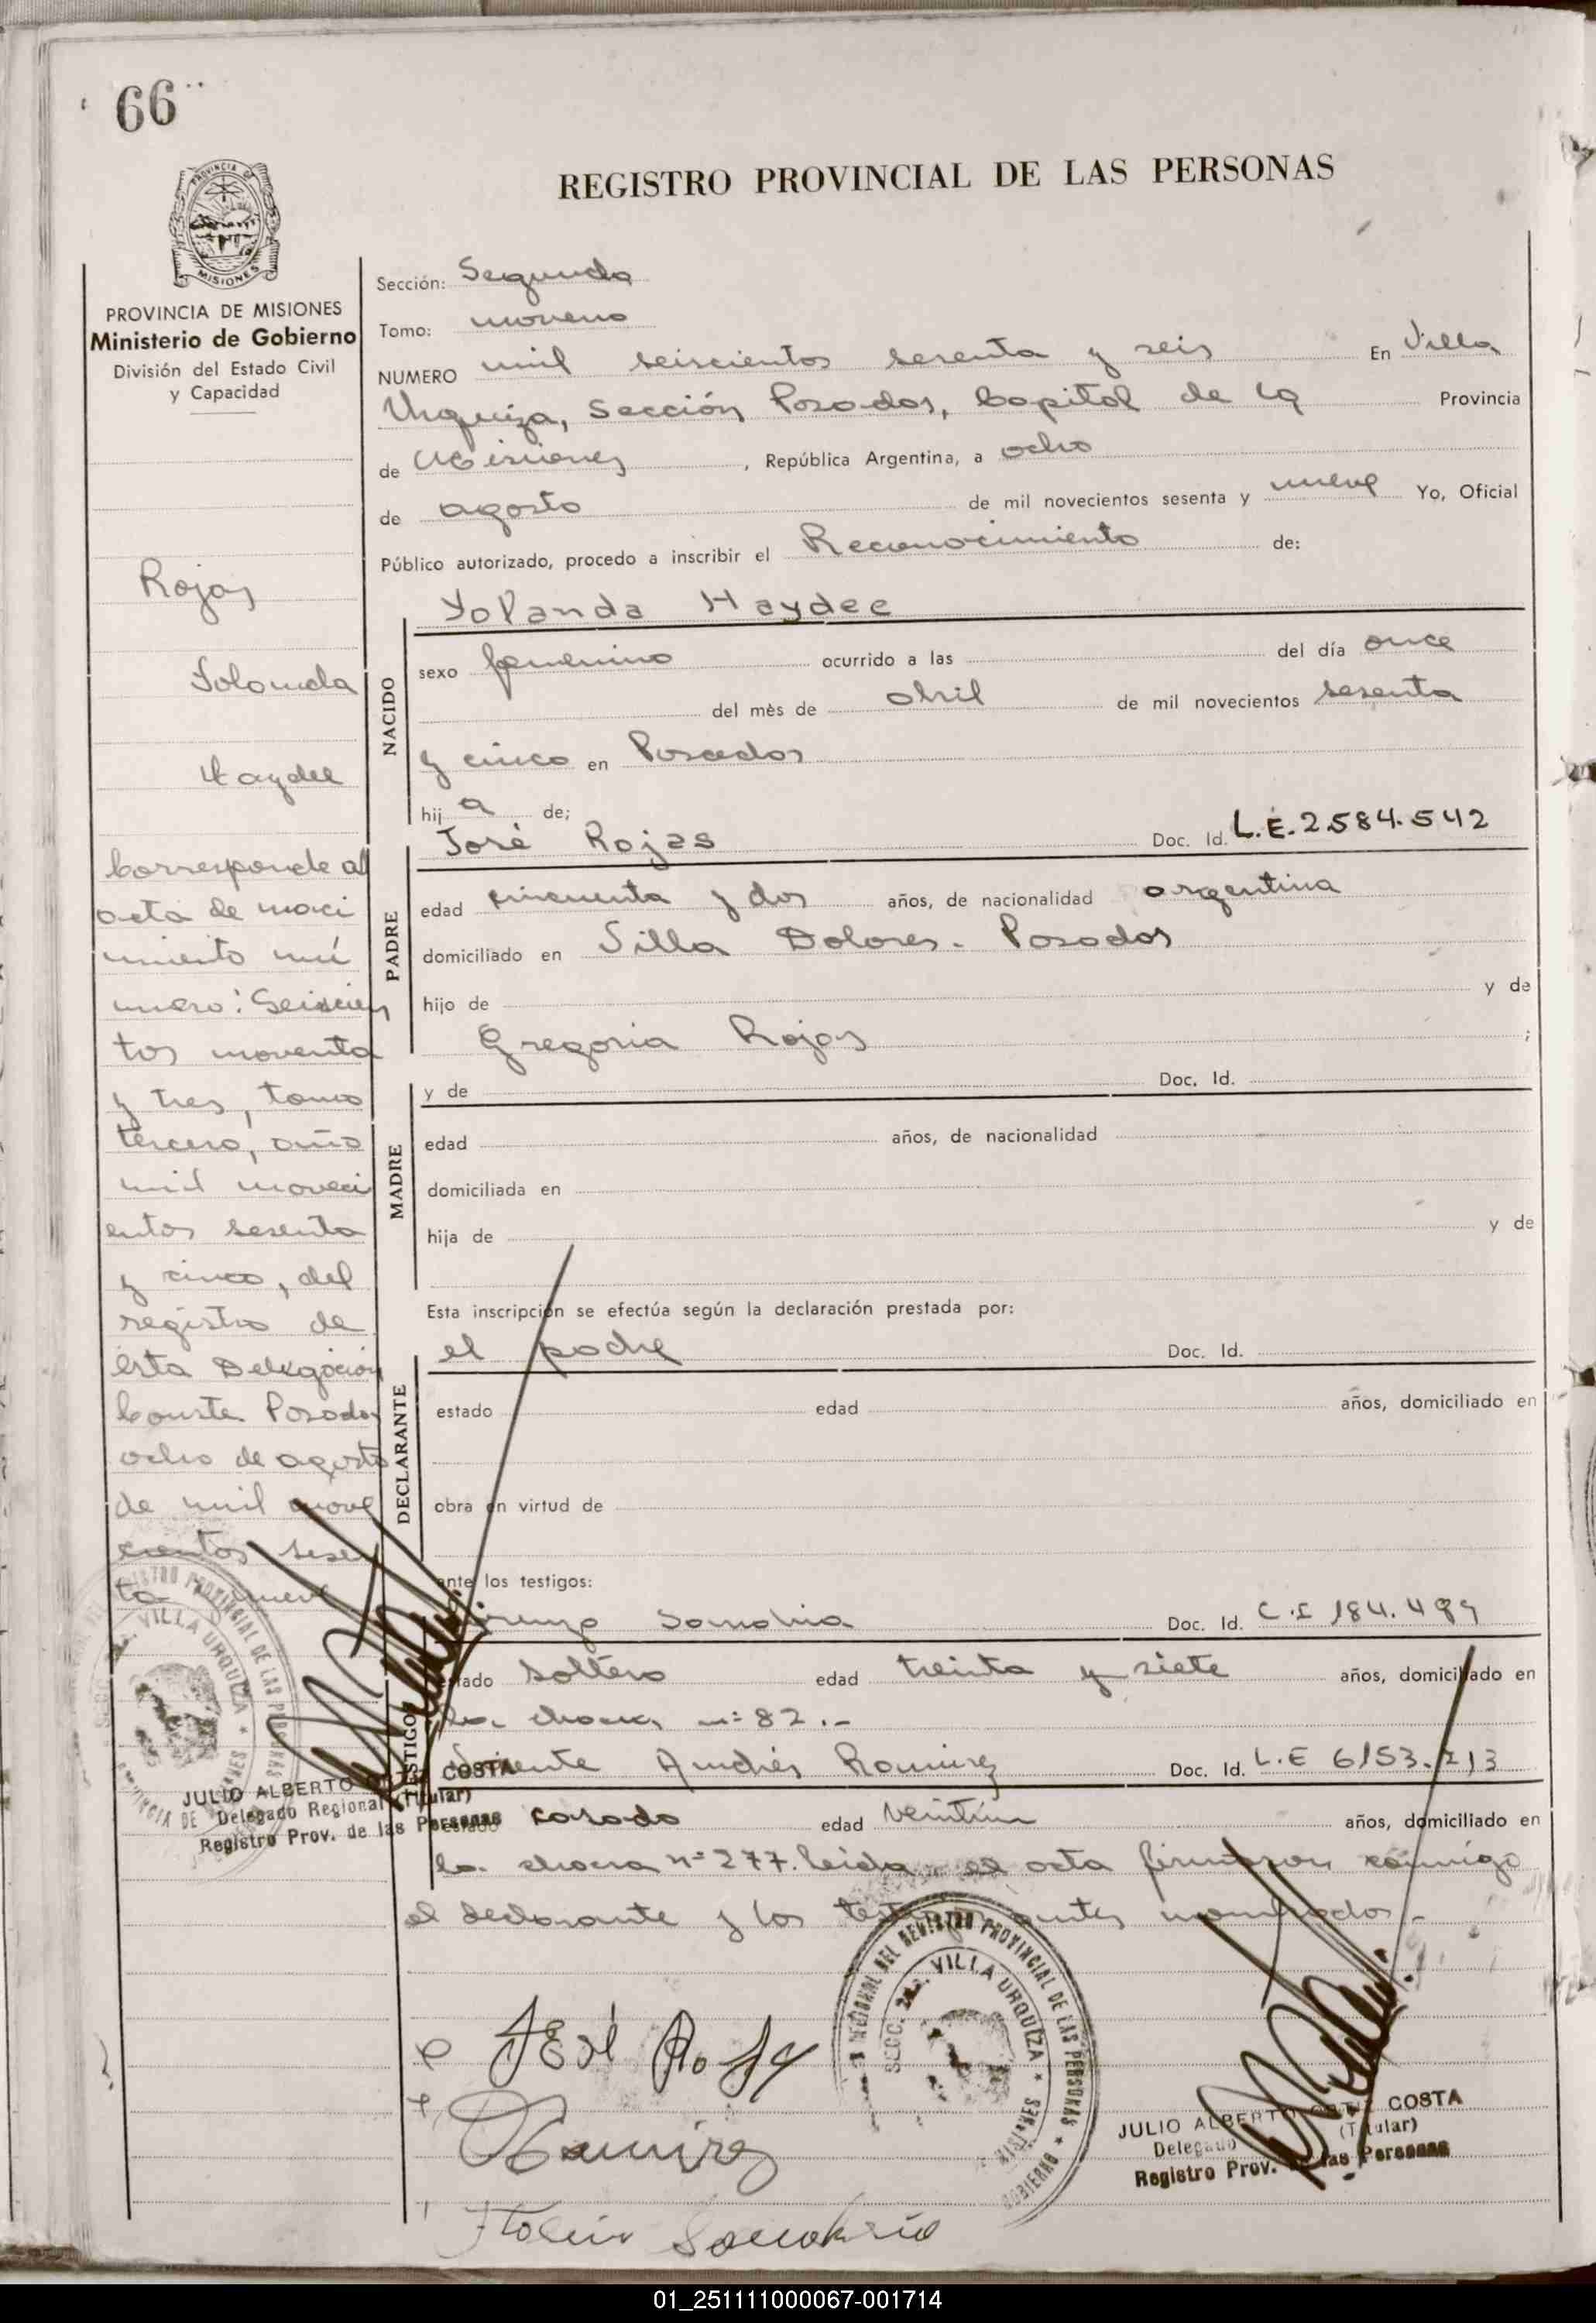 66
REGISTRO PROVINCIAL DE LAS PERSONAS
PROVINCIA DE MISIONES
Ministerio de Gobierno
División del Estado Civil
y Capacidad
Rojas
Yolanda
Haydee
Corresponde al
acta de naci
miento nú
mero: Seiscien
tos noventa
y tres, tomo
tercero, año
mil noveci
entos sesenta
y cinco, del
registro de
esta Delegación
Conste Posadas
ocho de agosto
de mil nove
cientos sesen
ta nueve
Sección: Segunda
Tomo: noveno
NUMERO mil seiscientos sesenta y seis En Villa
Urquiza, Sección Posadas, Capital de la Provincia
de Misiones, República Argentina, a ocho
de agosto de mil novecientos sesenta y nueve Yo, Oficial
Público autorizado, procedo a inscribir el Reconocimiento de:
NACIDO
Yolanda Haydee
sexo femenino ocurrido a las del día once
del mès de abril de mil novecientos sesenta
y cinco en Posadas
hij a de;
PADRE
José Rojas Doc. Id. L.E. 2.584.542
edad cincuenta y dos años, de nacionalidad argentina
domiciliado en Villa Dolores - Posadas
hijo de y de
Gregoria Rojas ;
MADRE
y de Doc. Id.
edad años, de nacionalidad
domiciliada en
hija de y de
Esta inscripción se efectúa según la declaración prestada por:
DECLARANTE
el padre Doc. Id.
estado edad años, domiciliado en
obra en virtud de
ante los testigos:
Doc. Id. C.I 184.499
estado soltero edad treinta y siete años, domiciliado en
la chacra nº 82.-
Andrés Ramirez Doc. Id. L.E 6153.213
estado casado edad años, domiciliado en
la chacra nº 277. leida el acta firmaron conmigo
el declarante y los testigos antes nombrados.-
José Rojas
Ramirez
SECC. 2da. VILLA URQUIZA
REGISTRO PROVINCIAL DE LAS PERSONAS
JULIO ALBERTO COSTA
Delegado Regional (Titular)
Registro Prov. de las Personas
SECC. 2da. VILLA URQUIZA
REGIONAL DEL REGISTRO PROVINCIAL DE LAS PERSONAS
JULIO ALBERTO COSTA
Delegado (Titular)
Registro Prov. de las Personas
01_251111000067-001714